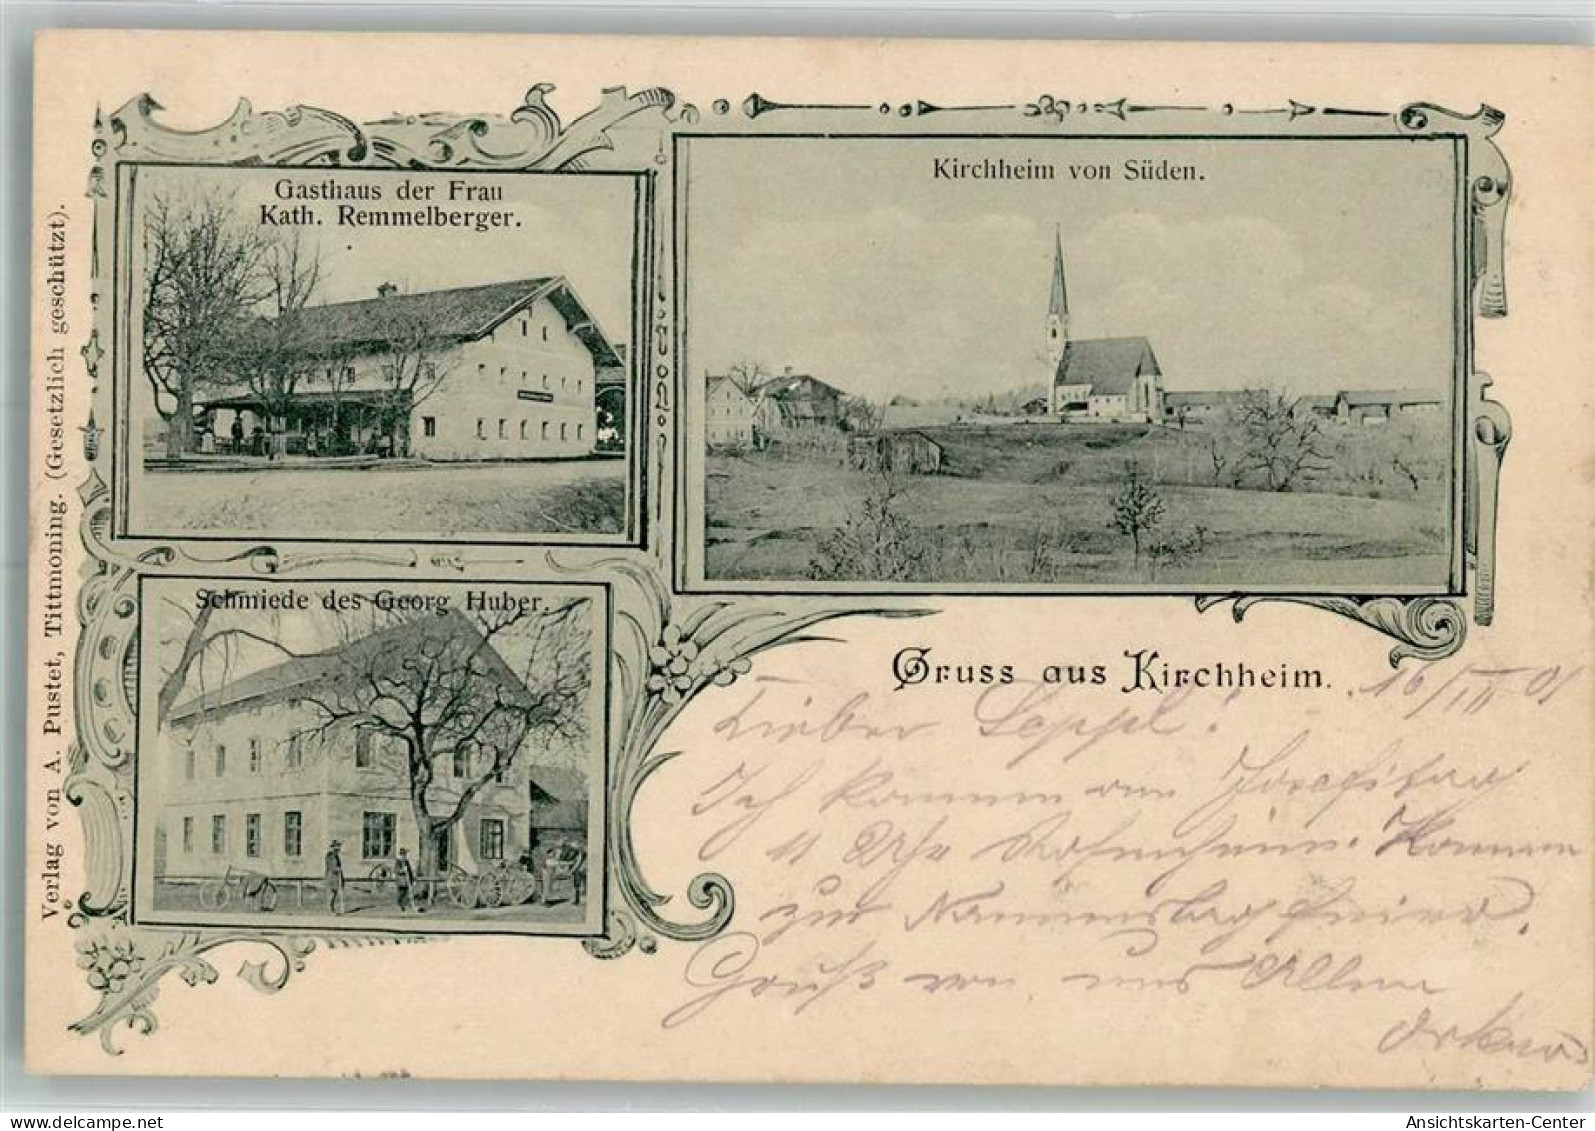 Gasthaus der Frau
Kath. Remmelberger.
Kirchheim von Süden.
Schmiede des Georg Huber.
Verlag von A. Pustet, Tittmoning. (Gesetzlich geschützt).
Gruss aus Kirchheim.
16/III 01
Lieber Seppl!
Ich komme am
11 Uhr Rosenheim. Komme
zur Namenstag
Gruß von uns Allen
oldthing.de
Ansichtskarten-Center